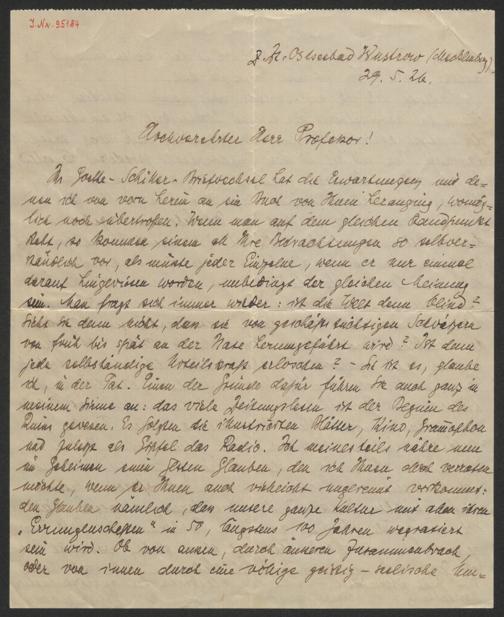 J.Nr. 95184
z. Zt. Ostseebad Wustrow (Mecklenburg).
29. 5. 26.
Hochverehrter Herr Professor!
Ihr Goethe-Schiller-Briefwechsel hat die Erwartungen, mit de-
nen ich von vorn herein an ein Buch von Ihnen heranging, womög-
lich noch übertroffen. Wenn man auf dem gleichen Standpunkt
steht, so kommen einem oft Ihre Betrachtungen so selbver-
ständlich vor, als müsste jeder Einzelne, wenn er nur einmal
darauf hingewiesen worden, unbedingt der gleichen Meinung
sein. Man fragt sich immer wieder: ist die Welt denn blind?
Sieht sie denn nicht, dass sie von geschäftstüchtigen Schwätzern
von früh bis spät an der Nase herumgeführt wird? Ist denn
jede selbständige Urteilskraft erloschen? - Sie ist es, glaube
ich, in der Tat. Einen der Gründe dafür führen Sie auch ganz in
meinem Sinne an: das viele Zeitungslesen ist der Beginn des
Ruins gewesen. Es folgten die illustrierten Blätter, Kino, Grammophon
und zuletzt als Gipfel das Radio. Ich meinesteils nähre nun
im Geheimen einen festen Glauben, den ich Ihnen doch verraten
möchte, wenn er Ihnen auch vielleicht ungereimt vorkommt:
den Glauben nämlich, dass unsere ganze Kultur mit allen ihren
„Errungenschaften" in 50, längstens 100 Jahren wegrasiert
sein wird. Ob von aussen, durch äusseren Zusammenbruch,
oder von innen durch eine völlige geistig-seelische Um-